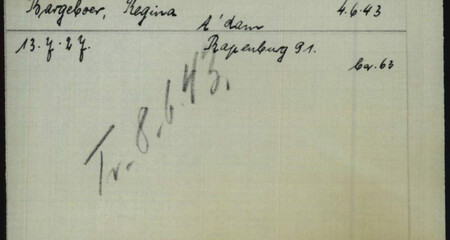 Bargeboer, Regina 4.6.43
A'dam
13.7.27. Rapenburg 91.
bar. 63
Tr. 8.6.43.